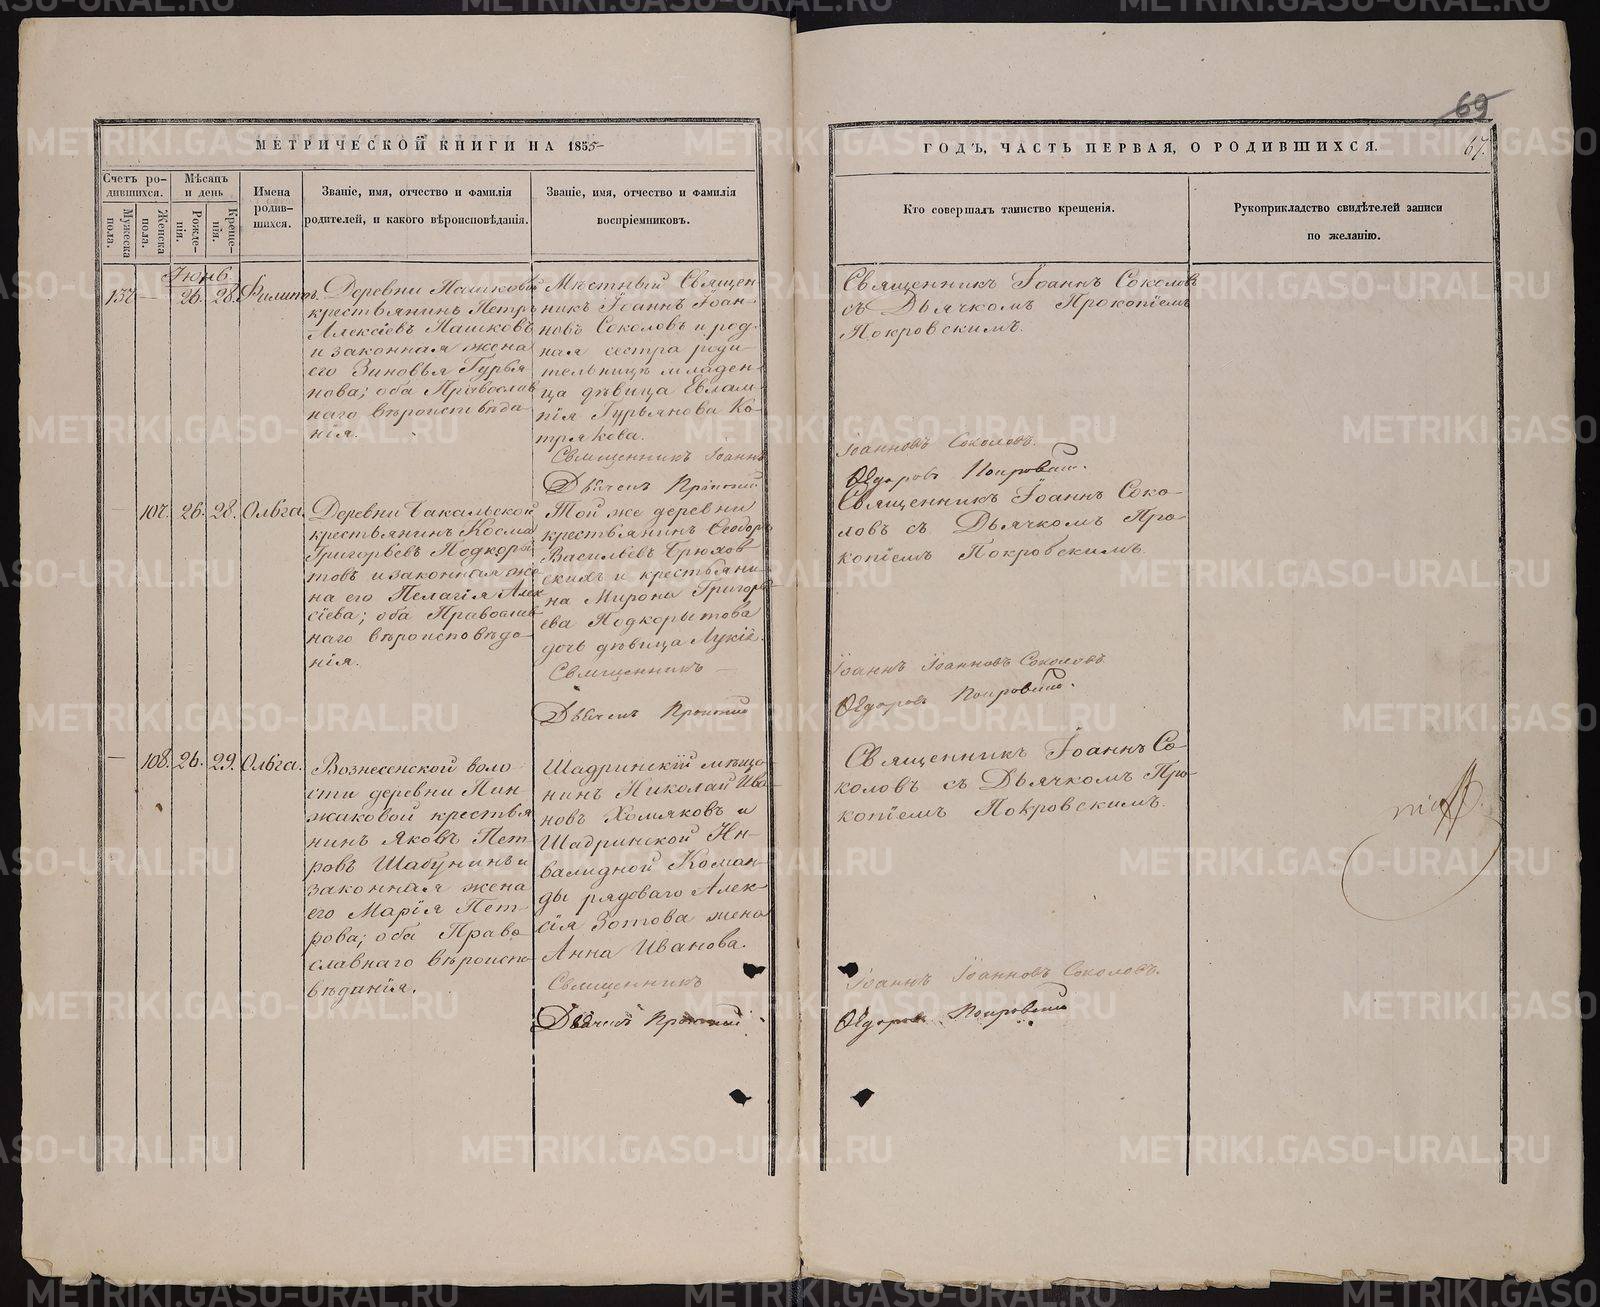 МЕТРИЧЕСКОЙ КНИГИ НА 1855
Счетъ ро-
дившихся.
Мужеска
пола.
Женска
пола.
Мѣсяцъ
и день
Рожде-
нія.
Креще-
нія.
Имена
родив-
шихся.
Званіе, имя, отчество и фамилія
родителей, и какого вѣроисповѣданія.
Званіе, имя, отчество и фамилія
воспріемниковъ.
Іюнь.
26. 28. Филиппъ.
Деревни Пашковой
крестьянинъ Петръ
Алексіевъ Пашковъ
и законная жена
его Зиновья Гурья
нова; оба Православ
наго вѣроисповѣда
нія.
Мѣстный Священ
никъ Іоаннъ Іоан
новъ Соколовъ и род
ная сестра роди
тельницы младен
ца дѣвица Евлам
пія Гурьянова Ко
трякова.
Священникъ Іоаннъ
Дьячекъ Прокопій
— 107. 26. 28. Ольга.
Деревни Бакальской
крестьянинъ Косма
Григорьевъ Подкоры
товъ и законная же
на его Пелагія Алек
сіева; оба Православ
наго вѣроисповѣда
нія.
Той же деревни
крестьянинъ Ѳеодоръ
Васильевъ Брюхов
скихъ и крестьяни
на Мирона Григорь
ева Подкорытова
дочь дѣвица Лукія.
Священникъ —
Дьячекъ Прокопій
— 108. 26. 29. Ольга.
Вознесенской воло
сти деревни Пин
жаковой крестья
нинъ Яковъ Пет
ровъ Шабунинъ и
законная жена
его Марія Пет
рова; оба Право
славнаго вѣроиспо
вѣданія.
Шадринскій мѣща
нинъ Николай Ива
новъ Хомяковъ и
Шадринской Ин-
валидной Коман-
ды рядоваго Алек
сія Зотова жена
Анна Иванова.
Священникъ
Дьячекъ Прокопій
69
67.
ГОДЪ, ЧАСТЬ ПЕРВАЯ, О РОДИВШИХСЯ.
Кто совершалъ таинство крещенія.
Рукоприкладство свидѣтелей записи
по желанію.
Священникъ Іоаннъ Соколовъ
съ Дьячкомъ Прокопіемъ
Покровскимъ.
Іоанновъ Соколовъ.
Покровскій.
Священникъ Іоаннъ Соко-
ловъ съ Дьячкомъ Про-
копіемъ Покровскимъ.
Іоаннъ Іоанновъ Соколовъ
Покровскій.
Священникъ Іоаннъ Со-
коловъ съ Дьячкомъ Про-
копіемъ Покровскимъ.
Іоаннъ Іоанновъ Соколовъ.
Покровскій
METRIKI.GASO-URAL.RU